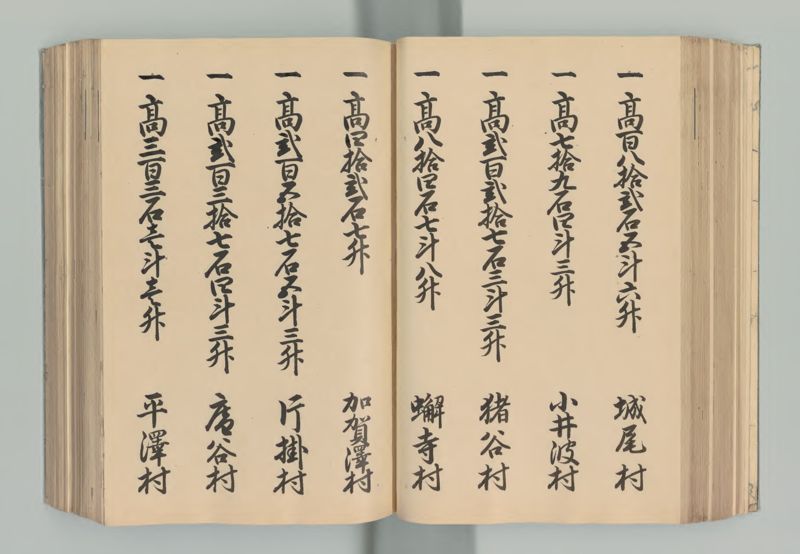 一 高百八拾弐石五斗六升 城尾村
一 高七拾九石四斗三升 小井波村
一 高弐百弐拾七石三斗三升 猪谷村
一 高八拾四石七斗八升 蟹寺村
一 高四拾弐石七升 加賀澤村
一 高弐百五拾七石五斗三升 片掛村
一 高弐百三拾七石四斗三升 庵谷村
一 高三百三石壱斗壱升 平澤村